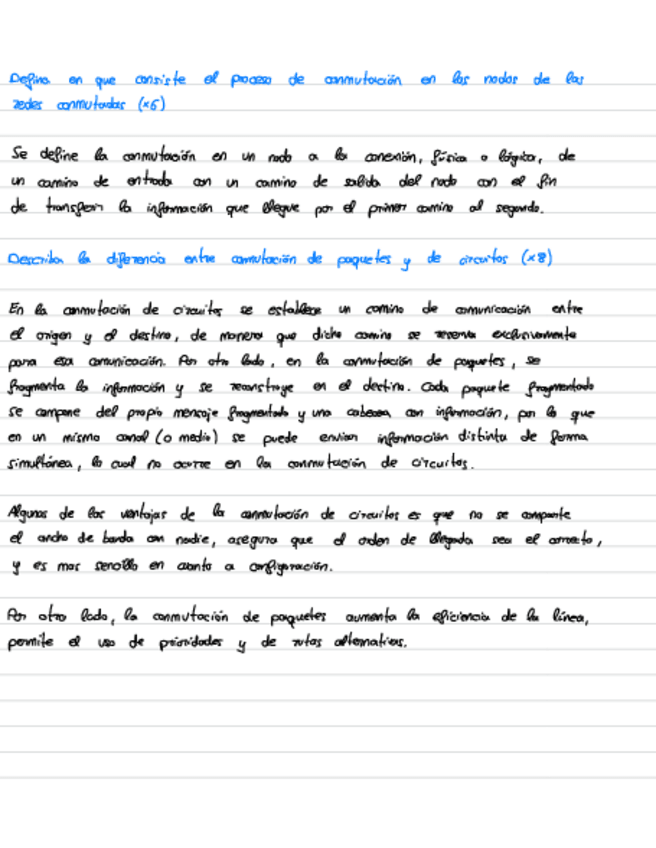 Defina en que consiste el proceso de conmutación en los nodos de las
redes conmutadas (x6)
Se define la conmutación en un nodo a la conexión, física o lógica, de
un camino de entrada con un camino de salida del nodo con el fin
de transferir la información que llegue por el primer camino al segundo.
Describa la diferencia entre conmutación de paquetes y de circuitos (x8)
En la conmutación de circuitos se establece un camino de comunicación entre
el origen y el destino, de manera que dicho camino se reserva exclusivamente
para esa comunicación. Por otro lado, en la conmutación de paquetes, se
fragmenta la información y se reconstruye en el destino. Cada paquete fragmentado
se compone del propio mensaje fragmentado y una cabecera con información, por lo que
en un mismo canal (o medio) se puede enviar información distinta de forma
simultánea, lo cual no ocurre en la conmutación de circuitos.
Algunas de las ventajas de la conmutación de circuitos es que no se comparte
el ancho de banda con nadie, asegura que el orden de llegada sea el correcto,
y es mas sencillo en cuanto a configuración.
Por otro lado, la conmutación de paquetes aumenta la eficiencia de la línea,
permite el uso de prioridades y de rutas alternativas.